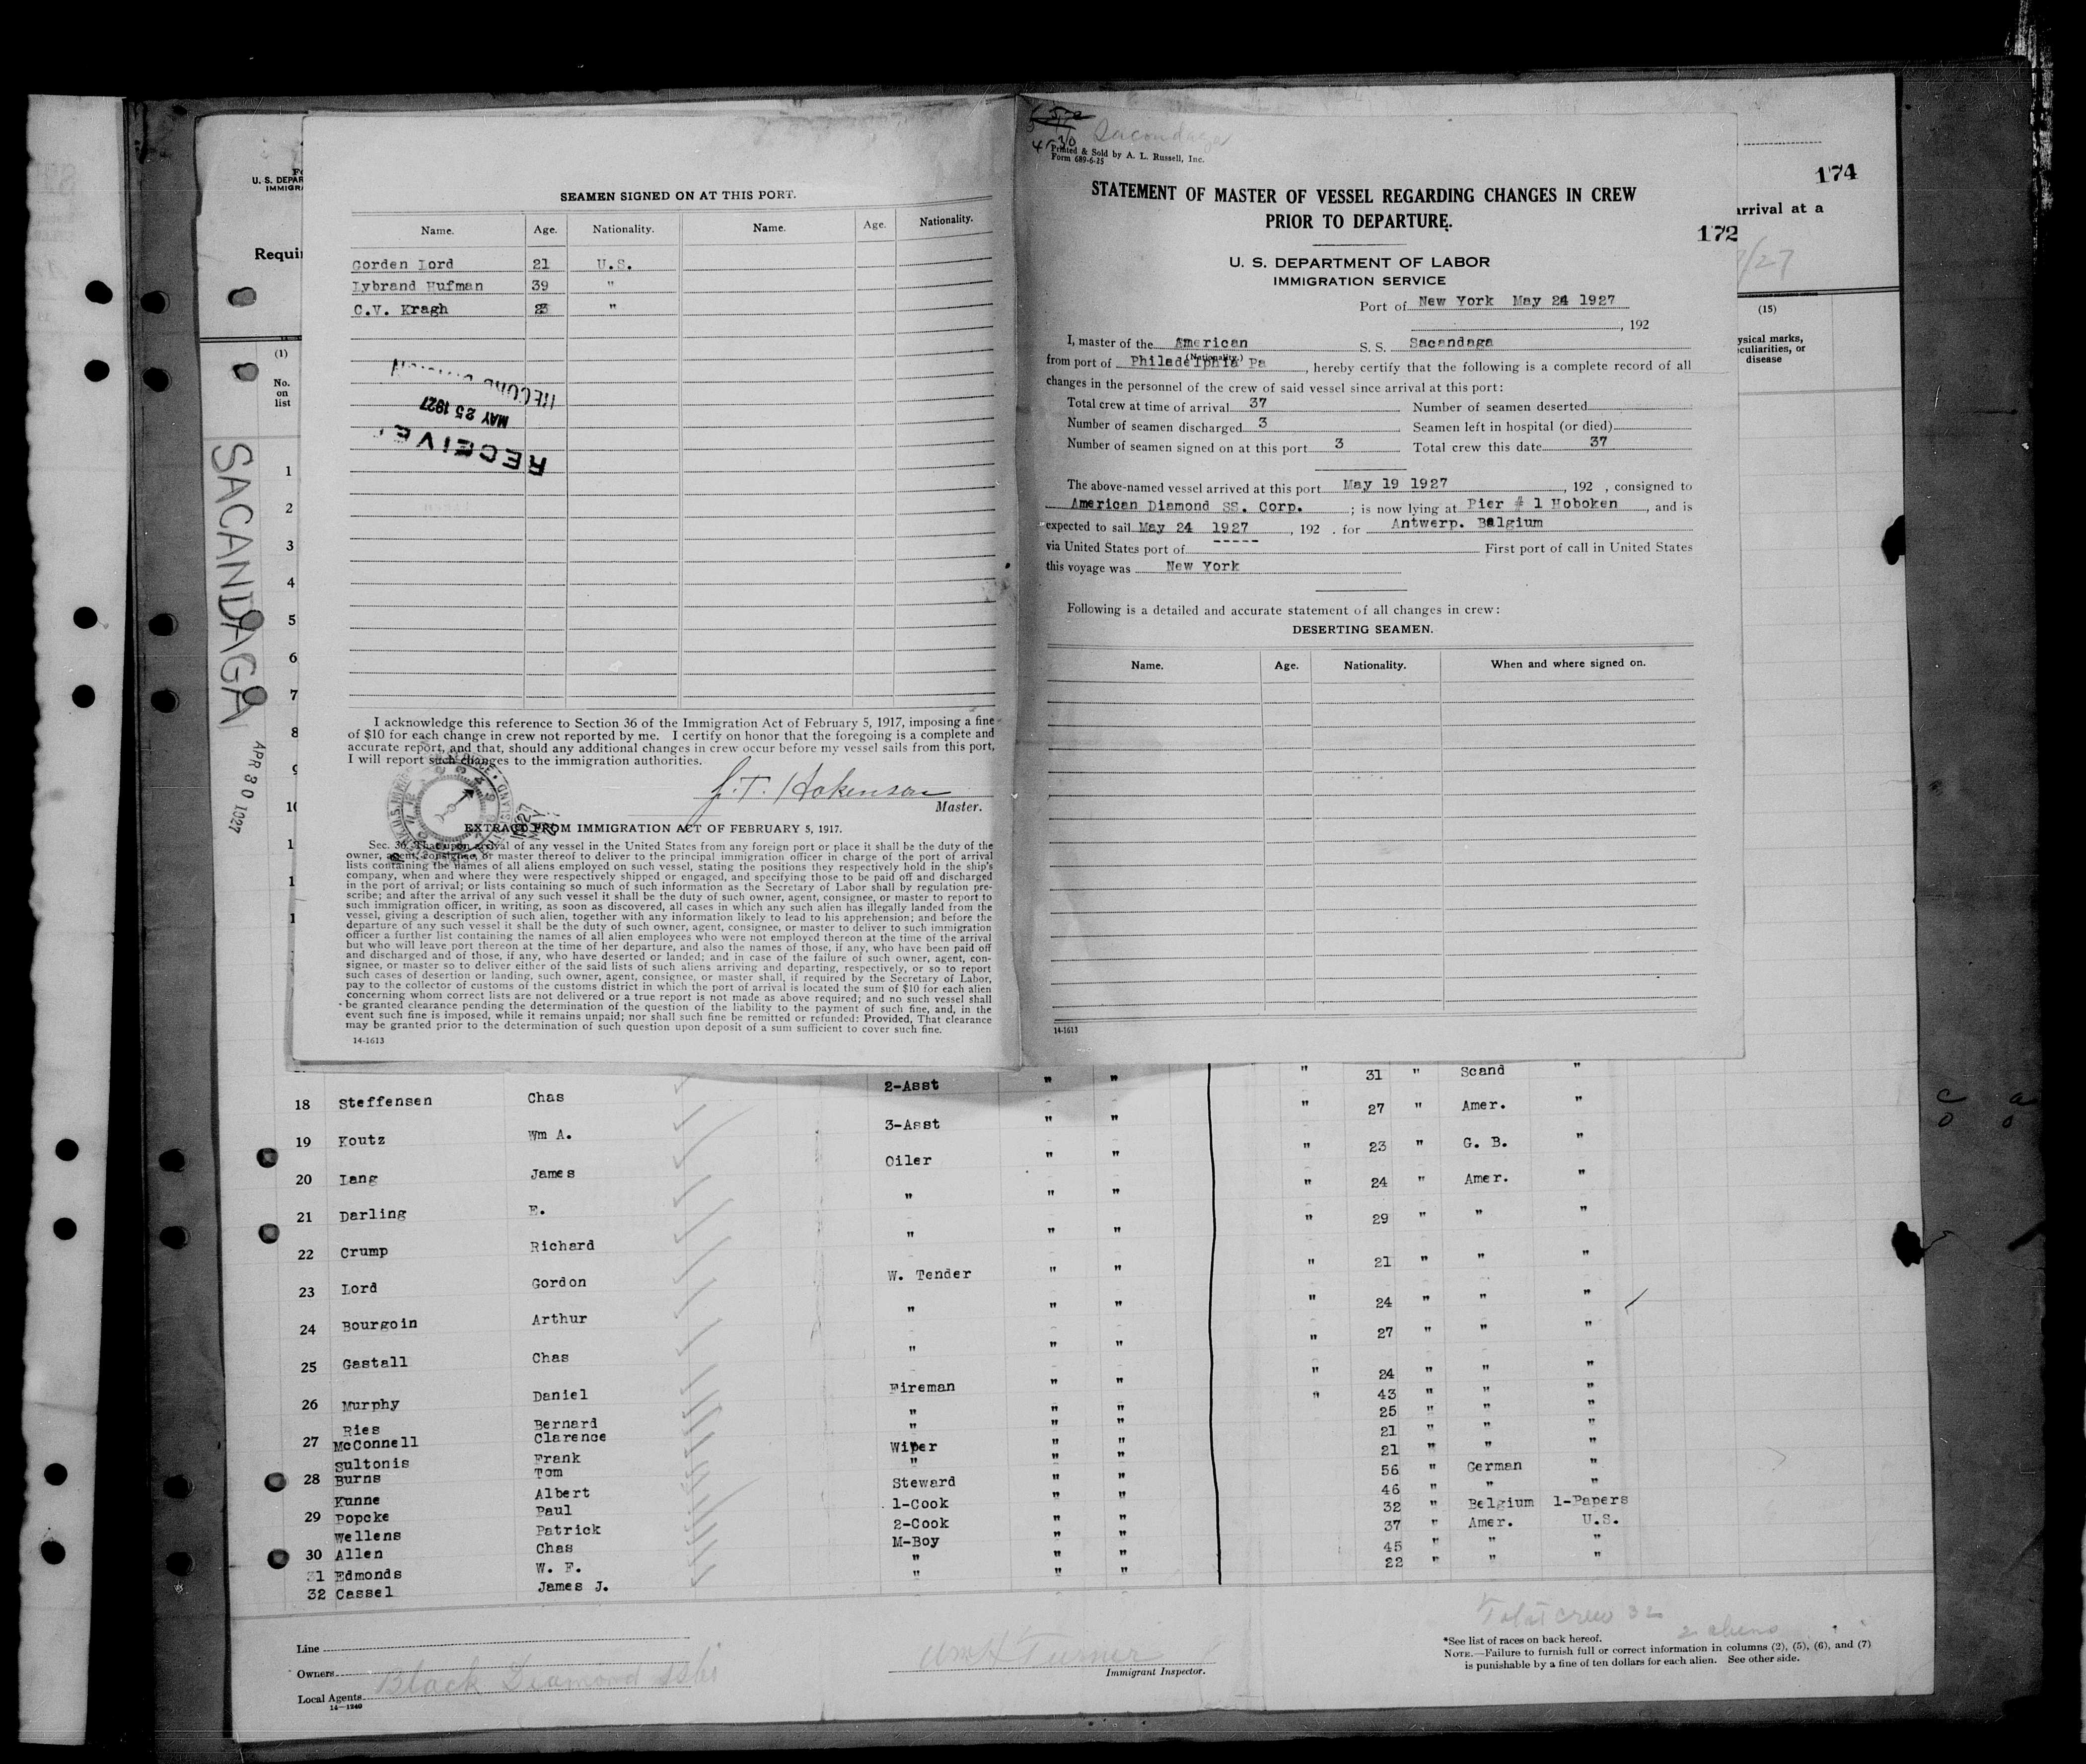 SEAMEN SIGNED ON AT THIS PORT.
Name. Age. Nationality. Name. Age. Nationality.
Gorden Lord 21 U.S.
Lybrand Hufman 39 "
C.V. Kragh "
RECEIVE
MAY 25 1927
RECORD
I acknowledge this reference to Section 36 of the Immigration Act of February 5, 1917, imposing a fine
of $10 for each change in crew not reported by me. I certify on honor that the foregoing is a complete and
accurate report, and that, should any additional changes in crew occur before my vessel sails from this port,
I will report such changes to the immigration authorities.
J.T. Hokenson
Master.
EXTRACT FROM IMMIGRATION ACT OF FEBRUARY 5, 1917.
Sec. 36. That upon arrival of any vessel in the United States from any foreign port or place it shall be the duty of the
owner, agent, consignee, or master thereof to deliver to the principal immigration officer in charge of the port of arrival
lists containing the names of all aliens employed on such vessel, stating the positions they respectively hold in the ship's
company, when and where they were respectively shipped or engaged, and specifying those to be paid off and discharged
in the port of arrival; or lists containing so much of such information as the Secretary of Labor shall by regulation pre-
scribe; and after the arrival of any such vessel it shall be the duty of such owner, agent, consignee, or master to report to
such immigration officer, in writing, as soon as discovered, all cases in which any such alien has illegally landed from the
vessel, giving a description of such alien, together with any information likely to lead to his apprehension; and before the
departure of any such vessel it shall be the duty of such owner, agent, consignee, or master to deliver to such immigration
officer a further list containing the names of all alien employees who were not employed thereon at the time of the arrival
but who will leave port thereon at the time of her departure, and also the names of those, if any, who have been paid off
and discharged and of those, if any, who have deserted or landed; and in case of the failure of such owner, agent, con-
signee, or master so to deliver either of the said lists of such aliens arriving and departing, respectively, or so to report
such cases of desertion or landing, such owner, agent, consignee, or master shall, if required by the Secretary of Labor,
pay to the collector of customs of the customs district in which the port of arrival is located the sum of $10 for each alien
concerning whom correct lists are not delivered or a true report is not made as above required; and no such vessel shall
be granted clearance pending the determination of the question of the liability to the payment of such fine, and, in the
event such fine is imposed, while it remains unpaid; nor shall such fine be remitted or refunded: Provided, That clearance
may be granted prior to the determination of such question upon deposit of a sum sufficient to cover such fine.
14-1613
Sacondaga
Printed & Sold by A. L. Russell, Inc.
Form 689-6-25
STATEMENT OF MASTER OF VESSEL REGARDING CHANGES IN CREW
PRIOR TO DEPARTURE.
172
U. S. DEPARTMENT OF LABOR
IMMIGRATION SERVICE
Port of New York May 24 1927
, 192
I, master of the American S. S. Sacandaga
(Nationality.)
from port of Philadelphia Pa, hereby certify that the following is a complete record of all
changes in the personnel of the crew of said vessel since arrival at this port:
Total crew at time of arrival 37 Number of seamen deserted
Number of seamen discharged 3 Seamen left in hospital (or died)
Number of seamen signed on at this port 3 Total crew this date 37
The above-named vessel arrived at this port May 19 1927, 192 , consigned to
American Diamond SS. Corp. ; is now lying at Pier # 1 Hoboken, and is
expected to sail May 24 1927, 192 . for Antwerp. Belgium
via United States port of ----- First port of call in United States
this voyage was New York
Following is a detailed and accurate statement of all changes in crew:
DESERTING SEAMEN.
Name. Age. Nationality. When and where signed on.
14-1613
174
U. S. DEPAR
IMMIGRA
Requi
rrival at a
/27
(1)
No.
on
list
(15)
ysical marks,
culiarities, or
disease
SACANDAGA
APR 30 1927
1
2
3
4
5
6
7
8
2-Asst " " " 31 " Scand "
18 Steffensen Chas
3-Asst " " " 27 " Amer. "
19 Koutz Wm A.
Oiler " " " 23 " G. B. "
20 Lang James
" " " " 24 " Amer. "
21 Darling E.
" " " " 29 " " "
22 Crump Richard
W. Tender " " " 21 " " "
23 Lord Gordon
" " " " 24 " " "
24 Bourgoin Arthur
" " " " 27 " " "
25 Gastall Chas
Fireman " " " 24 " " "
26 Murphy Daniel
" " " " 43 " " "
Ries Bernard " " " 25 " " "
27 McConnell Clarence
Wiper " " 21 " " "
Sultonis Frank " " " 21 " " "
28 Burns Tom
Steward " " 56 " German "
Kunne Albert
1-Cook " " 46 " " "
29 Popcke Paul
2-Cook " " 32 " Belgium 1-Papers
Wellens Patrick
M-Boy " " 37 " Amer. U.S.
30 Allen Chas
" " " 45 " " "
31 Edmonds W. F.
" " " 22 " " "
32 Cassel James J.
Total crew 32
2 aliens
Line
Owners
Black Diamond
Local Agents
14—1240
Wm H Turner
Immigrant Inspector.
*See list of races on back hereof.
NOTE.—Failure to furnish full or correct information in columns (2), (5), (6), and (7)
is punishable by a fine of ten dollars for each alien. See other side.